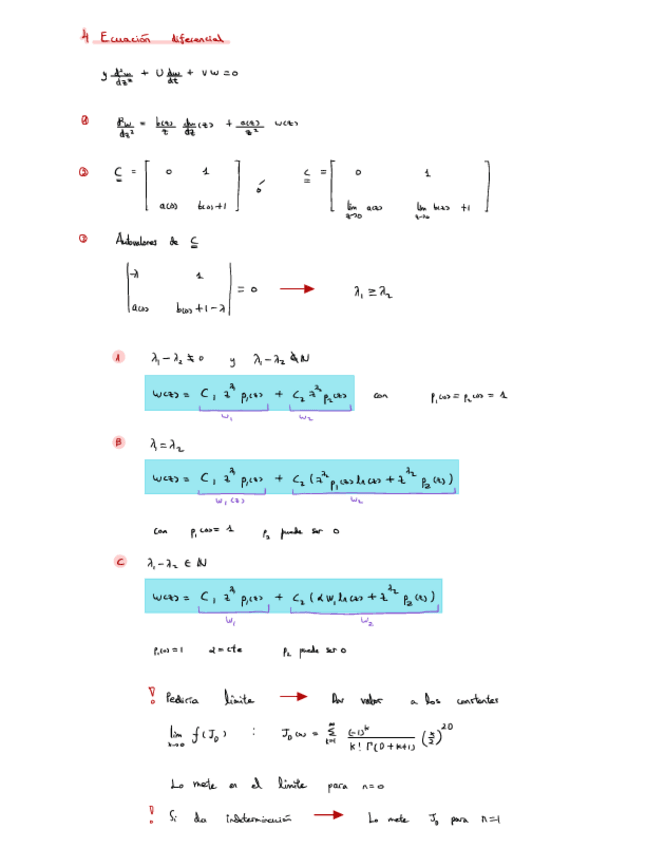 4 Ecuación diferencial
y d²w/dz² + U dw/dt + V w = 0
① d²w/dz² = b(z)/z dw/dz (z) + a(z)/z² w(z)
② C = [ 0 1 ; a(0) b(0)+1 ] ó C = [ 0 1 ; lim z→0 a(z) lim z→0 b(z) +1 ]
③ Autovalores de C
| -λ 1 ; a(0) b(0)+1-λ | = 0 → λ₁ ≥ λ₂
A λ₁ - λ₂ ≠ 0 y λ₁ - λ₂ ∉ N
w(z) = C₁ z^λ₁ p₁(z) + C₂ z^λ₂ p₂(z) con p₁(0) = p₂(0) = 1
w₁ w₂
B λ₁ = λ₂
w(z) = C₁ z^λ₁ p₁(z) + C₂ (z^λ₁ p₁(z) ln(z) + z^λ₂ p₂(z))
w₁(z) w₂
con p₁(0) = 1 p₂ puede ser 0
C λ₁ - λ₂ ∈ N
w(z) = C₁ z^λ₁ p₁(z) + C₂ (α w₁ ln(z) + z^λ₂ p₂(z))
w₁ w₂
p₁(0) = 1 α = cte p₂ puede ser 0
! Pediría límite → Dar valor a las constantes
lim x→0 f(J₀) :
Lo mete en el límite para n=0
! Si da indeterminación → Lo mete J₀ para n=1